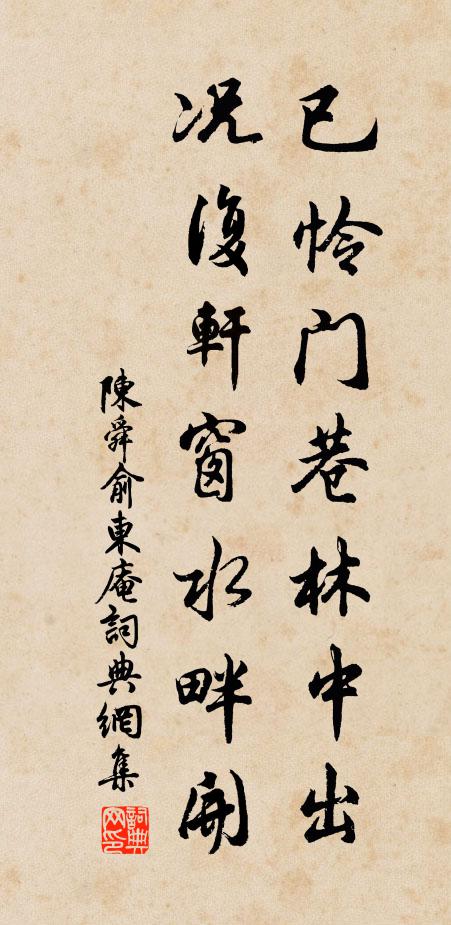 已怜門巷林中出
况復軒窗水畔開
陳舜俞東庵詞典網集
詞典网印